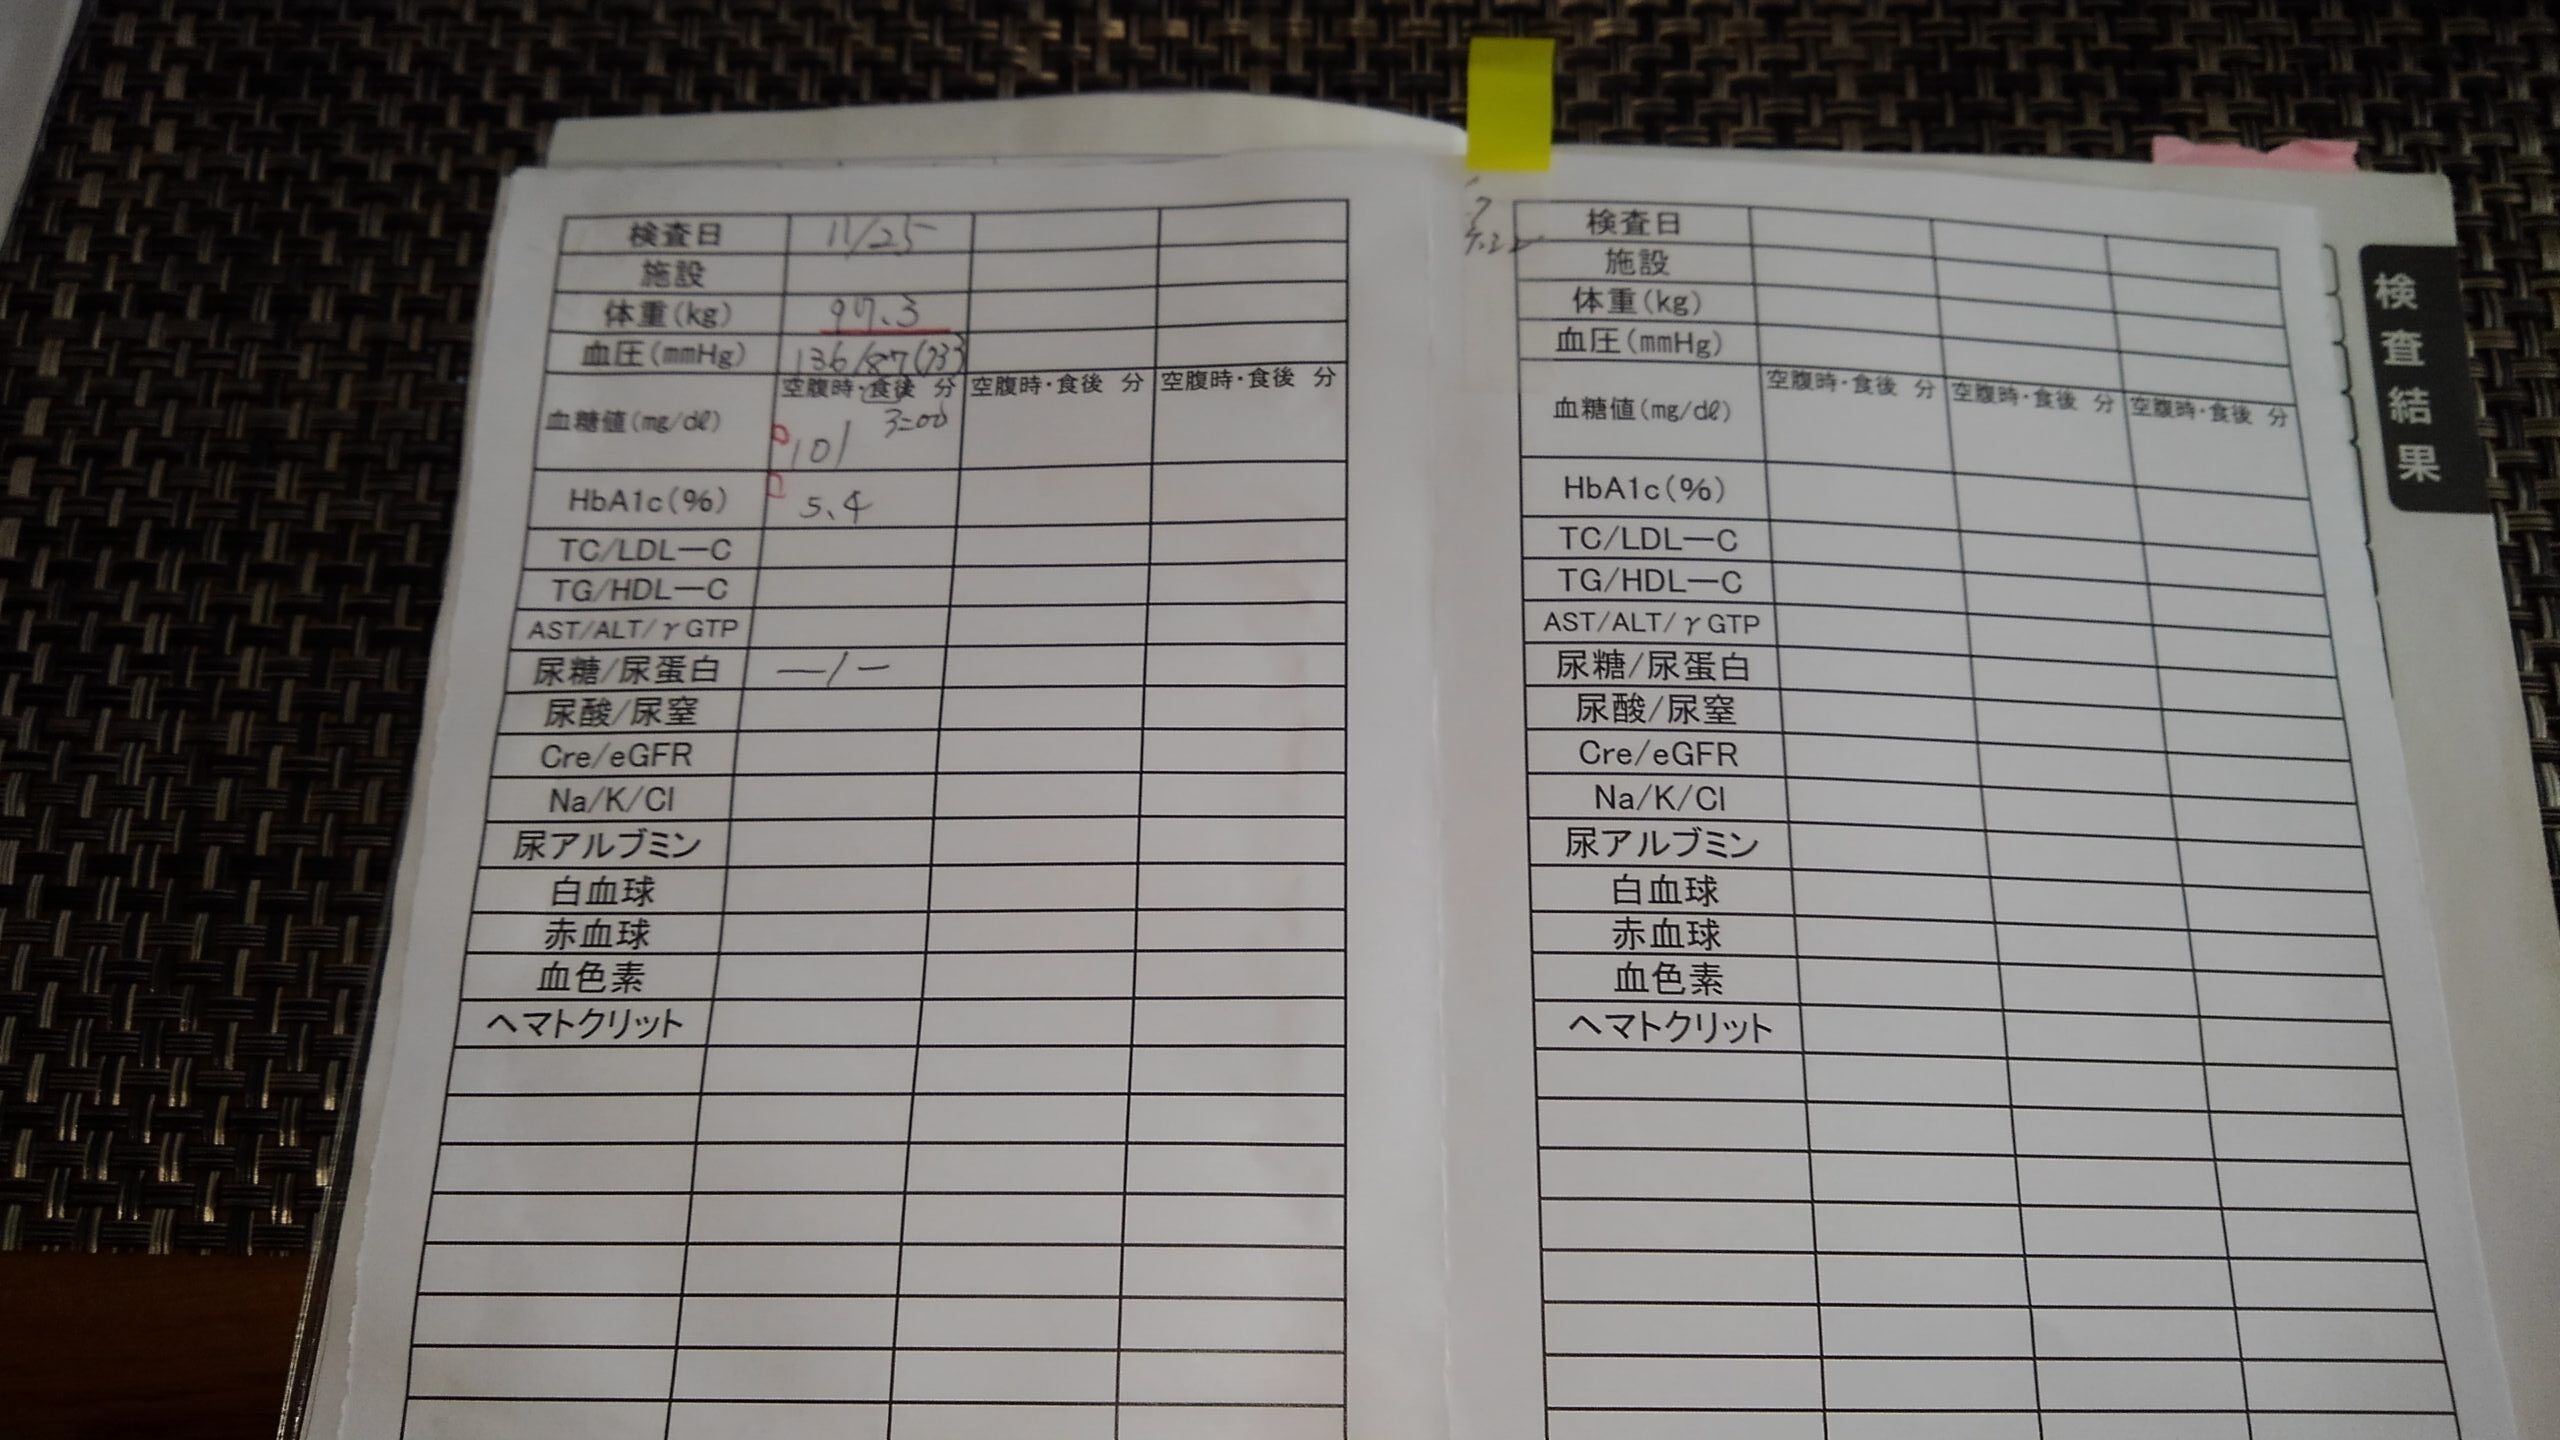 検査日 11/25
施設
体重(kg) 97.3
血圧(mmHg) 136/87(93)
血糖値(mg/dℓ) 空腹時・食後 分 空腹時・食後 分 空腹時・食後 分
3:00
101
HbA1c(%) 5.4
TC/LDL—C
TG/HDL—C
AST/ALT/γGTP
尿糖/尿蛋白 —/—
尿酸/尿窒
Cre/eGFR
Na/K/Cl
尿アルブミン
白血球
赤血球
血色素
ヘマトクリット
検査日
施設
体重(kg)
血圧(mmHg)
血糖値(mg/dℓ) 空腹時・食後 分 空腹時・食後 分 空腹時・食後 分
HbA1c(%)
TC/LDL—C
TG/HDL—C
AST/ALT/γGTP
尿糖/尿蛋白
尿酸/尿窒
Cre/eGFR
Na/K/Cl
尿アルブミン
白血球
赤血球
血色素
ヘマトクリット
検査結果